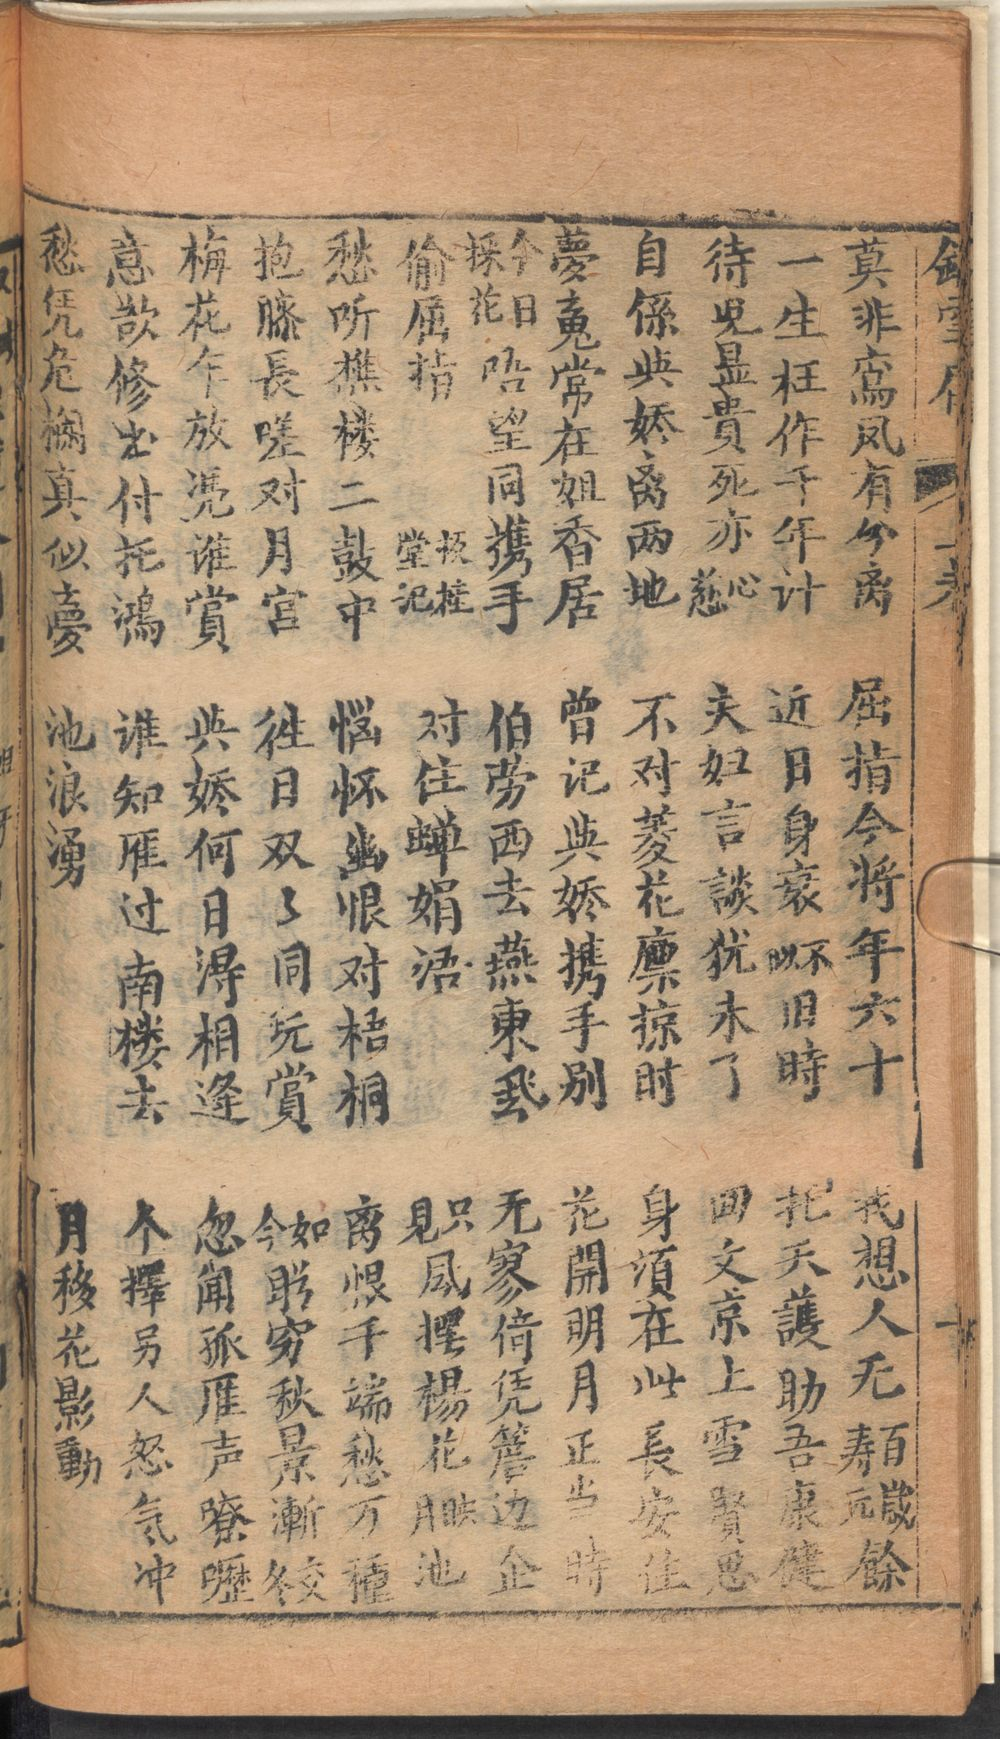 莫非鸾凤有分离
屈指今将年六十
我想人无百歲寿元餘
一生枉作千年计
近日身衰不似旧時
托天護助吾康健
待児显貴死亦心慈
夫妇言談犹未了
回文京上雪賢思
自係與娇离两地
不对菱花廪掠时
身須在此長安住
夢䰟常在姐香居
曾记與娇携手别
花開明月正当時
今日採花唔望同携手
伯劳西去燕東飛
无寥倚凭簷边企
偷屈指
板桂堂记
对住蝉娟语
只見風擺楊花月映池
愁听樵楼二鼓中
悩怀幽恨对梧桐
离恨千端愁万種
抱膝長嗟对月宫
往日双々同玩賞
如今盼穷秋景漸交冬
梅花乍放凴谁賞
與娇何日淂相逢
忽闻孤雁声嘹嚦
意欲修书付托鴻
谁知雁过南楼去
不擇另人怒气冲
愁凭危欄真似夢
池浪湧
月移花影動